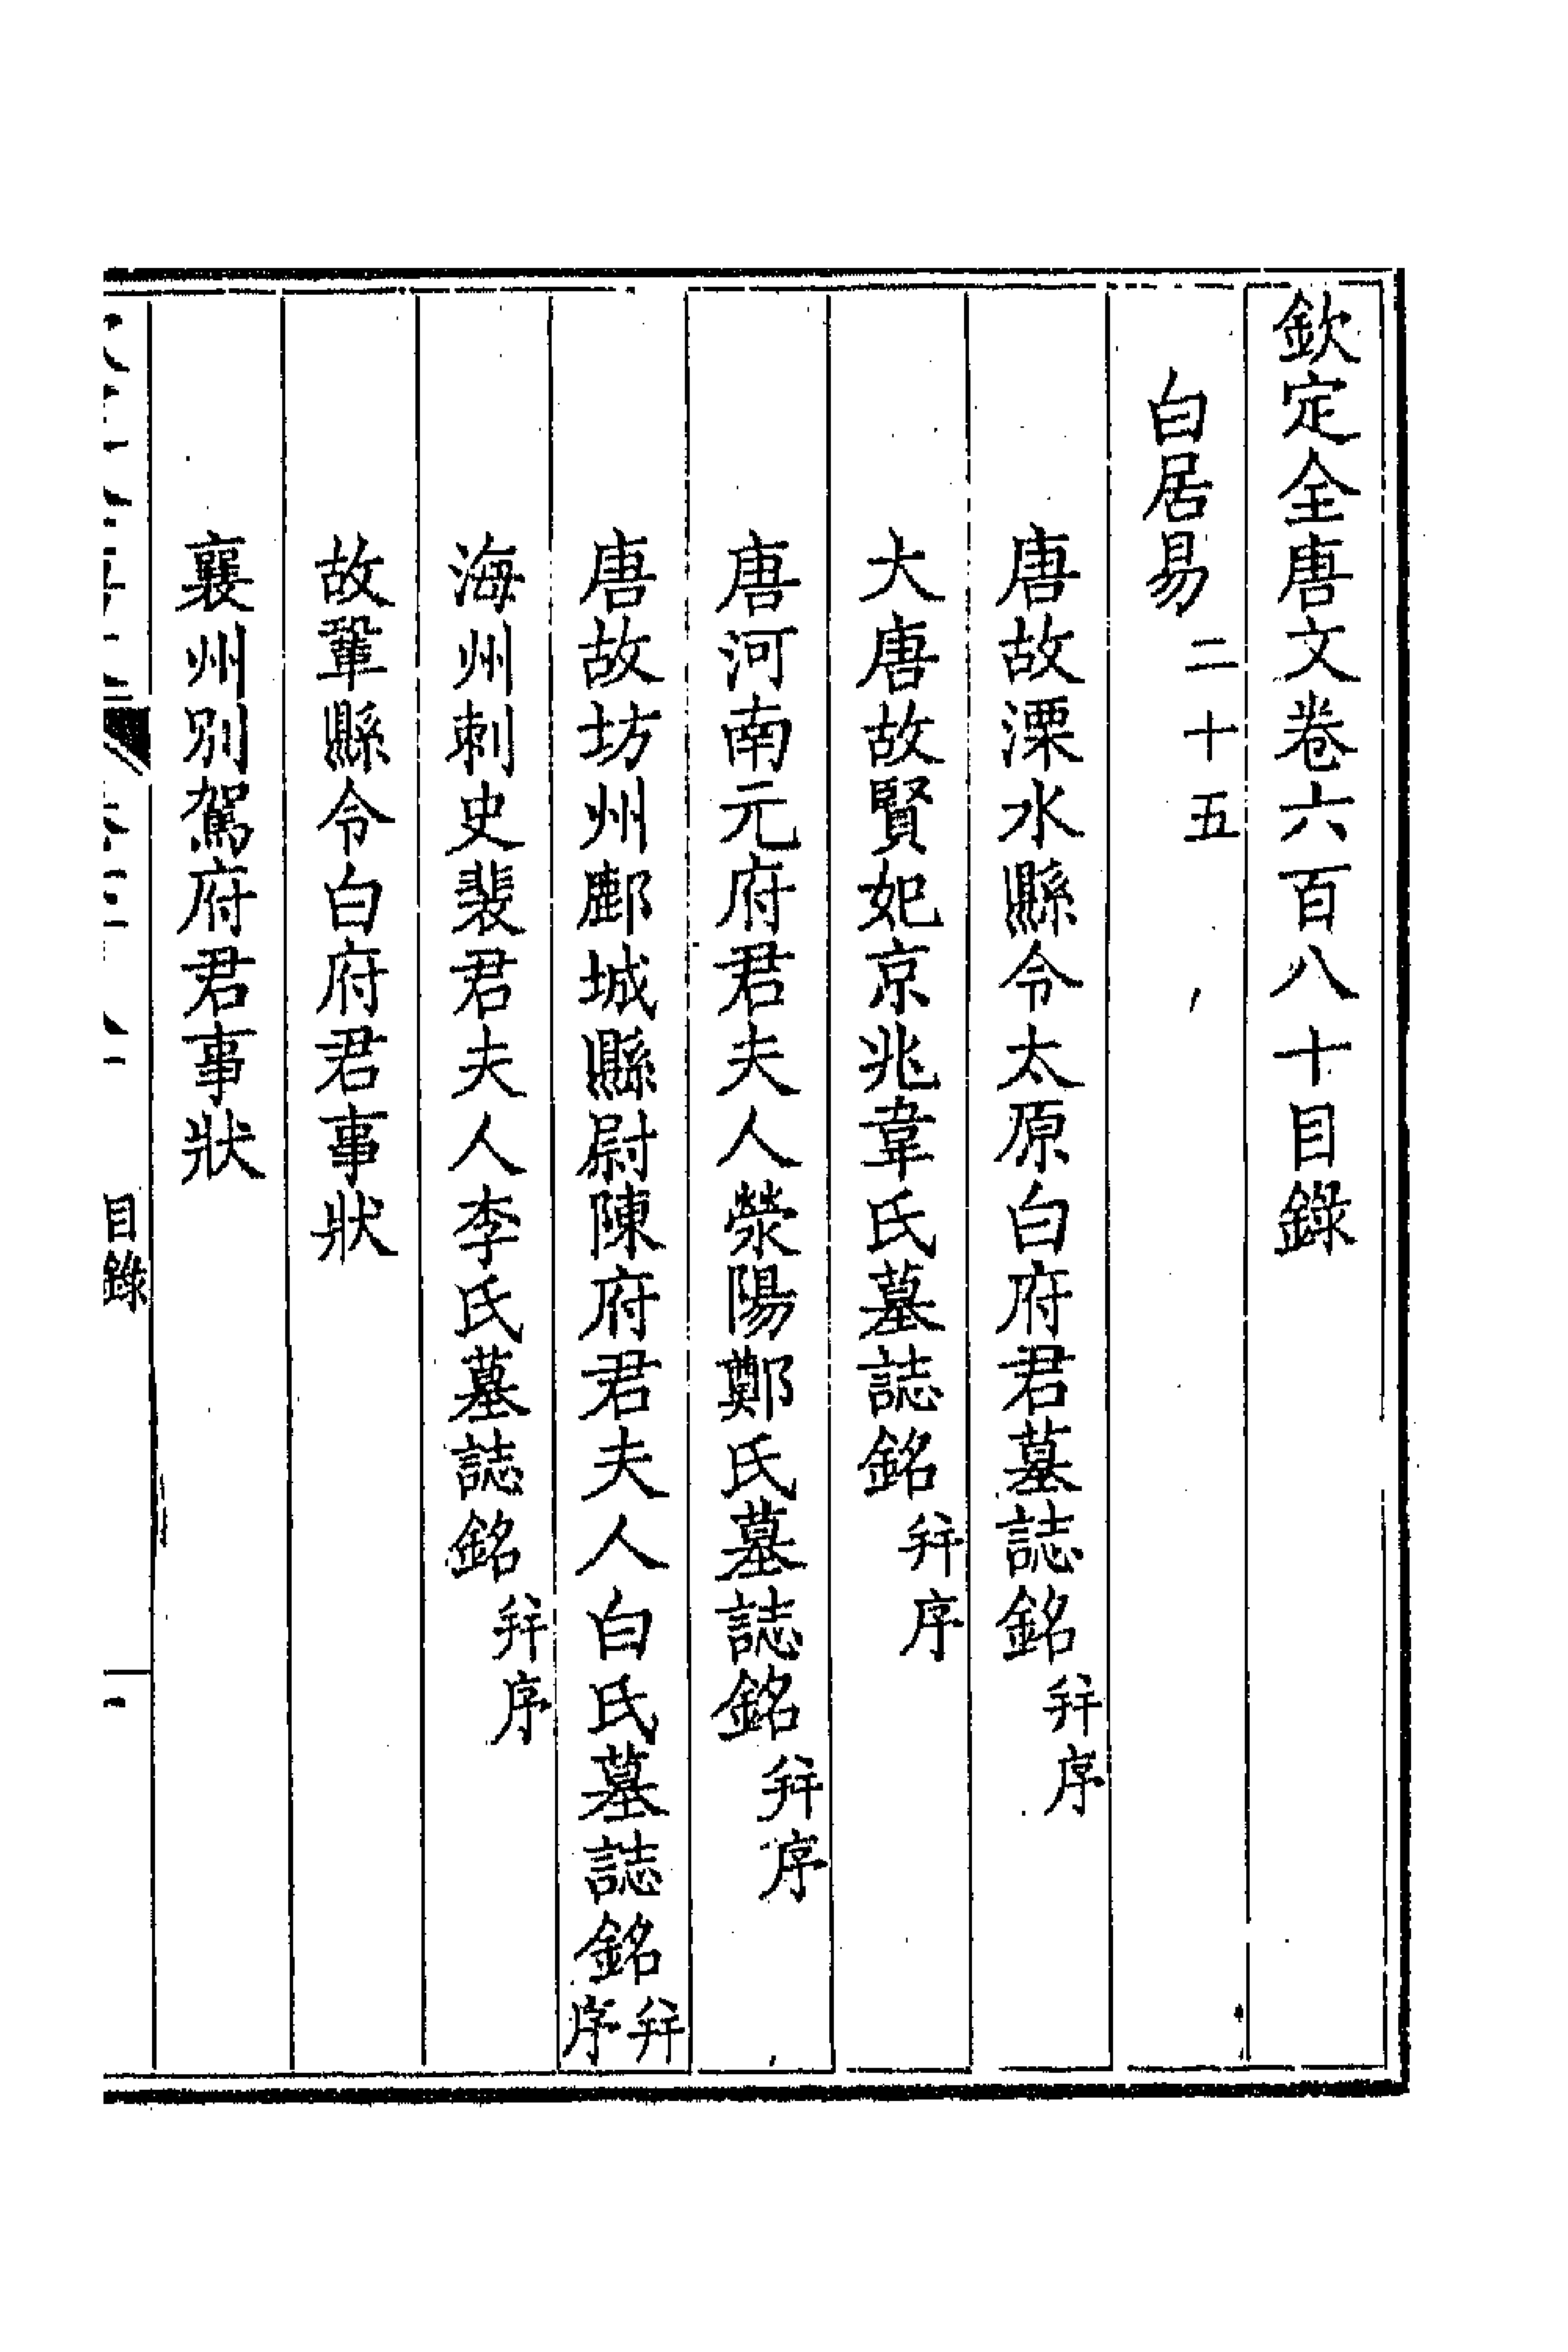 欽定全唐文卷六百八十目錄
白居易二十五
唐故溧水縣令太原白府君墓誌銘并序
大唐故賢妃京兆韋氏墓誌銘并序
唐河南元府君夫人滎陽鄭氏墓誌銘并序
唐故坊州鄜城縣尉陳府君夫人白氏墓誌銘并序
海州刺史裴君夫人李氏墓誌銘并序
故鞏縣令白府君事狀
襄州別駕府君事狀
目錄